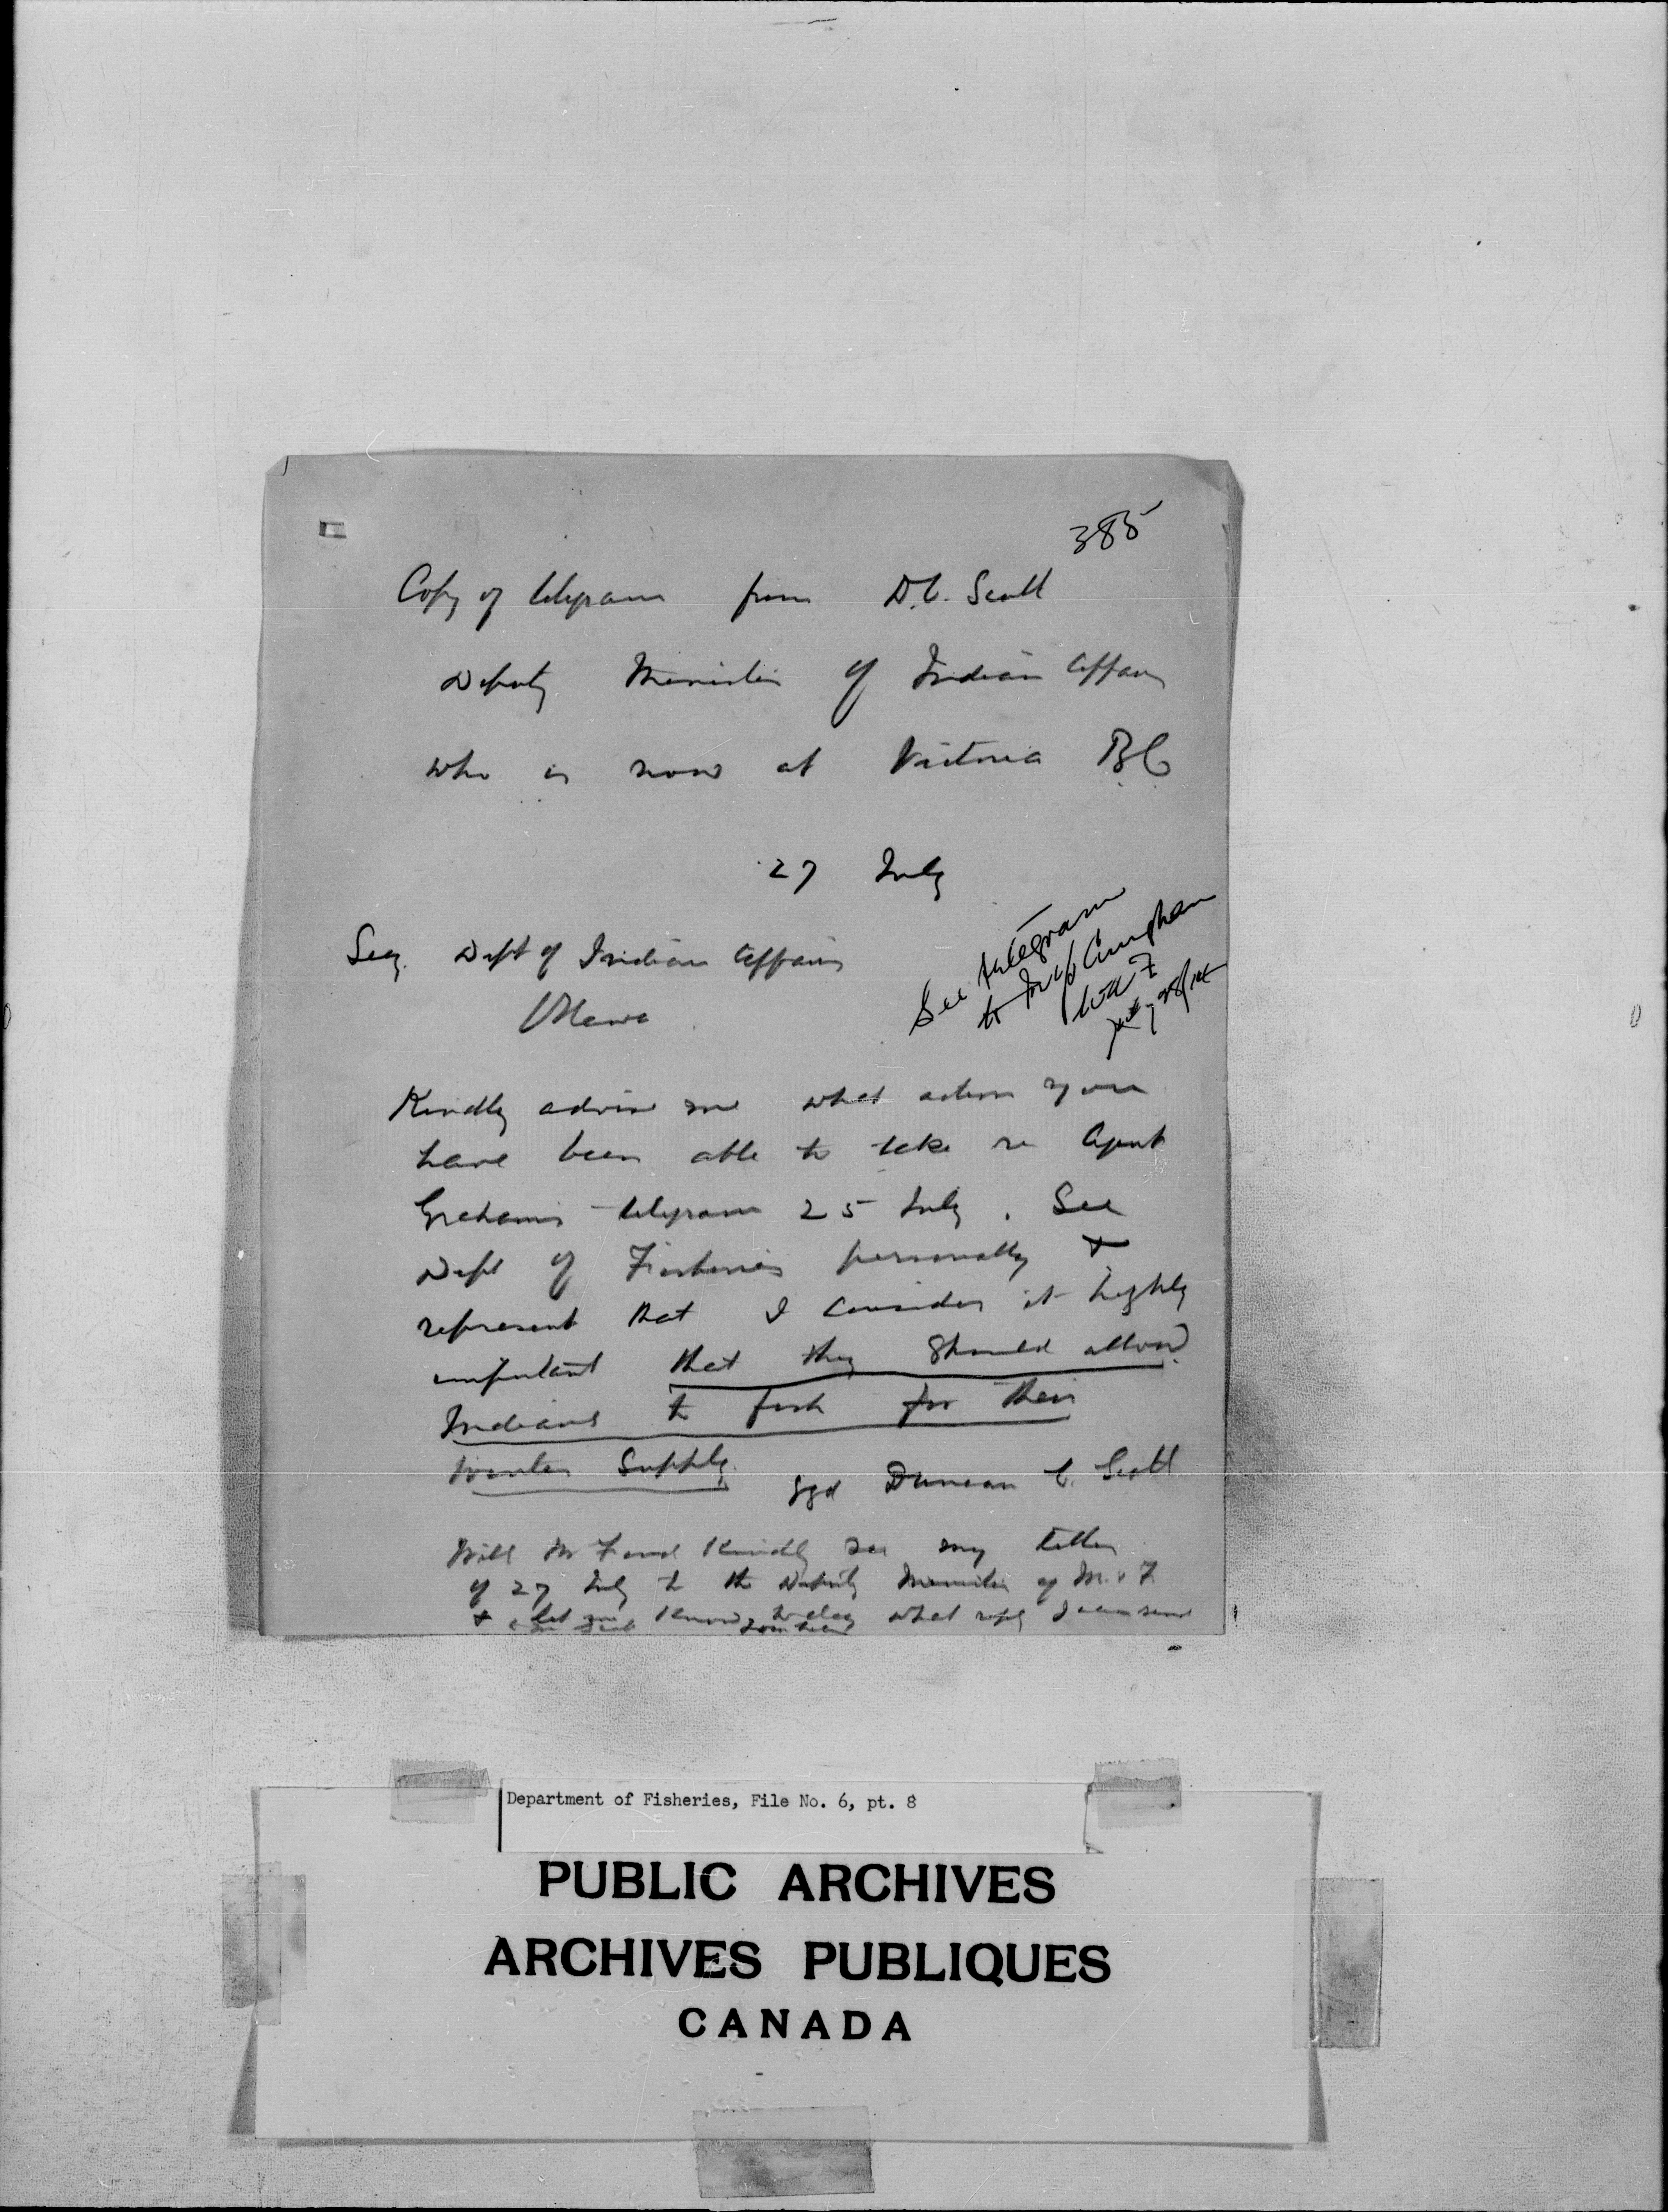 385
Copy of telegram from D.C. Scott
Deputy Minister of Indian Affairs
who is now at Victoria B.C.
27 July
Secy. Dept of Indian Affairs
Ottawa
See telegram
to Cunningham
July 28/14
Kindly advise me what action you
have been able to take re Agent
Graham's telegram 25 July. See
Dept of Fisheries personally &
represent that I consider it highly
important that they should allow
Indians to fish for their
winter supply.
sgd Duncan C. Scott
Will Mr Found kindly see my letter
of 27 July to the Deputy Minister of M. & F.
& let me know today what reply I can send
Department of Fisheries, File No. 6, pt. 8
PUBLIC ARCHIVES
ARCHIVES PUBLIQUES
CANADA